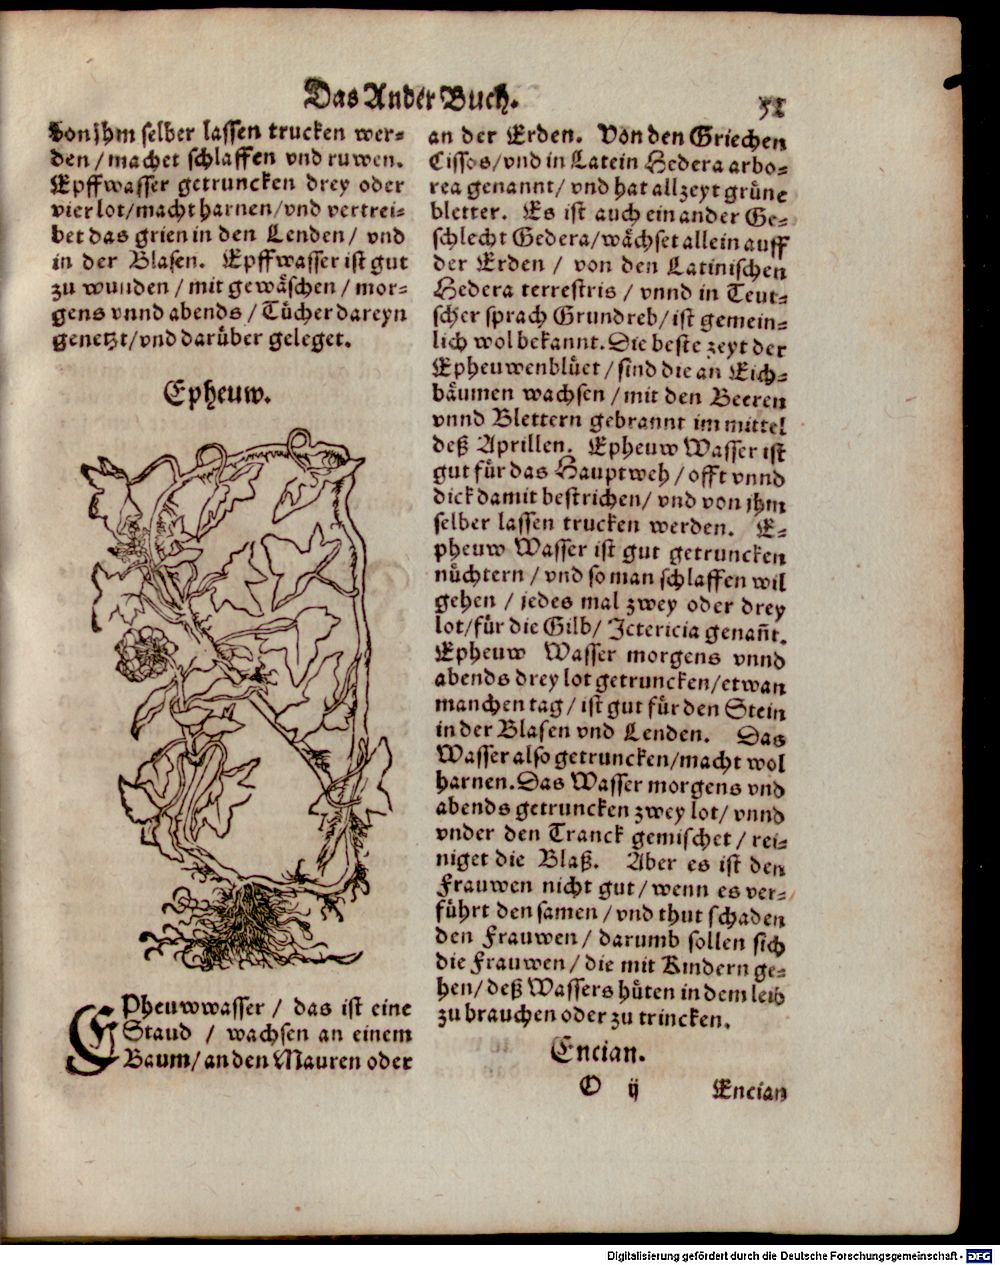 Das Ander Buch.
52
von jhm selber lassen trucken wer-
den / machet schlaffen vnd ruwen.
Epffwasser getruncken drey oder
vier lot / macht harnen / vnd vertrei-
bet das grien in den Lenden / vnd
in der Blasen. Epffwasser ist gut
zu wunden / mit gewäschen / mor-
gens vnnd abends / Tücher dareyn
genetzt / vnd darüber geleget.
Epheuw.
EPheuwwasser / das ist eine
Staud / wachsen an einem
Baum / an den Mauren oder
an der Erden. Von den Griechen
Cissos / vnd in Latein Hedera arbo-
rea genannt / vnd hat allzeyt grüne
bletter. Es ist auch ein ander Ge-
schlecht Gedera / wächset allein auff
der Erden / von den Latinischen
Hedera terrestris / vnnd in Teut-
scher sprach Grundreb / ist gemein-
lich wol bekannt. Die beste zeyt der
Epheuwenblüet / sind die an Eich-
bäumen wachsen / mit den Beeren
vnnd Blettern gebrannt im mittel
deß Aprillen. Epheuw Wasser ist
gut für das Hauptweh / offt vnnd
dick damit bestrichen / vnd von jhm
selber lassen trucken werden. E-
pheuw Wasser ist gut getruncken
nüchtern / vnd so man schlaffen wil
gehen / jedes mal zwey oder drey
lot / für die Gilb / Ictericia genañt.
Epheuw Wasser morgens vnnd
abends drey lot getruncken / etwan
manchen tag / ist gut für den Stein
in der Blasen vnd Lenden. Das
Wasser also getruncken / macht wol
harnen. Das Wasser morgens vnd
abends getruncken zwey lot / vnnd
vnder den Tranck gemischet / rei-
niget die Blaß. Aber es ist den
Frauwen nicht gut / wenn es ver-
führt den samen / vnd thut schaden
den Frauwen / darumb sollen sich
die Frauwen / die mit Kindern ge-
hen / deß Wassers hüten in dem leib
zu brauchen oder zu trincken.
Encian.
O ij
Encian
Digitalisierung gefördert durch die Deutsche Forschungsgemeinschaft - DFG